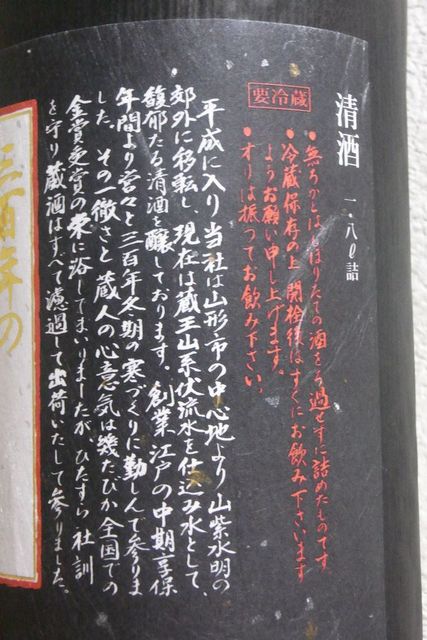 清酒 一・八ℓ詰
要冷蔵
●無ろかとはしぼりたての酒をろ過せずに詰めたものです
●冷蔵保存の上 開栓後はすぐにお飲み下さいます
ようお願い申し上げます。
●オリは振ってお飲み下さい。
平成に入り当社は山形市の中心地より山紫水明の
郊外に移転し、現在は蔵王山系伏流水を仕込み水として、
馥郁たる清酒を醸しております。創業江戸の中期享保
年間より営々と三百年冬期の寒づくりに勤しんで参りま
した。その一徹さと蔵人の心意気は幾たびか全国での
金賞受賞の栄に浴してまいりましたが、ひたすら社訓
を守り蔵酒はすべて濾過して出荷いたして参りました。
三百年の